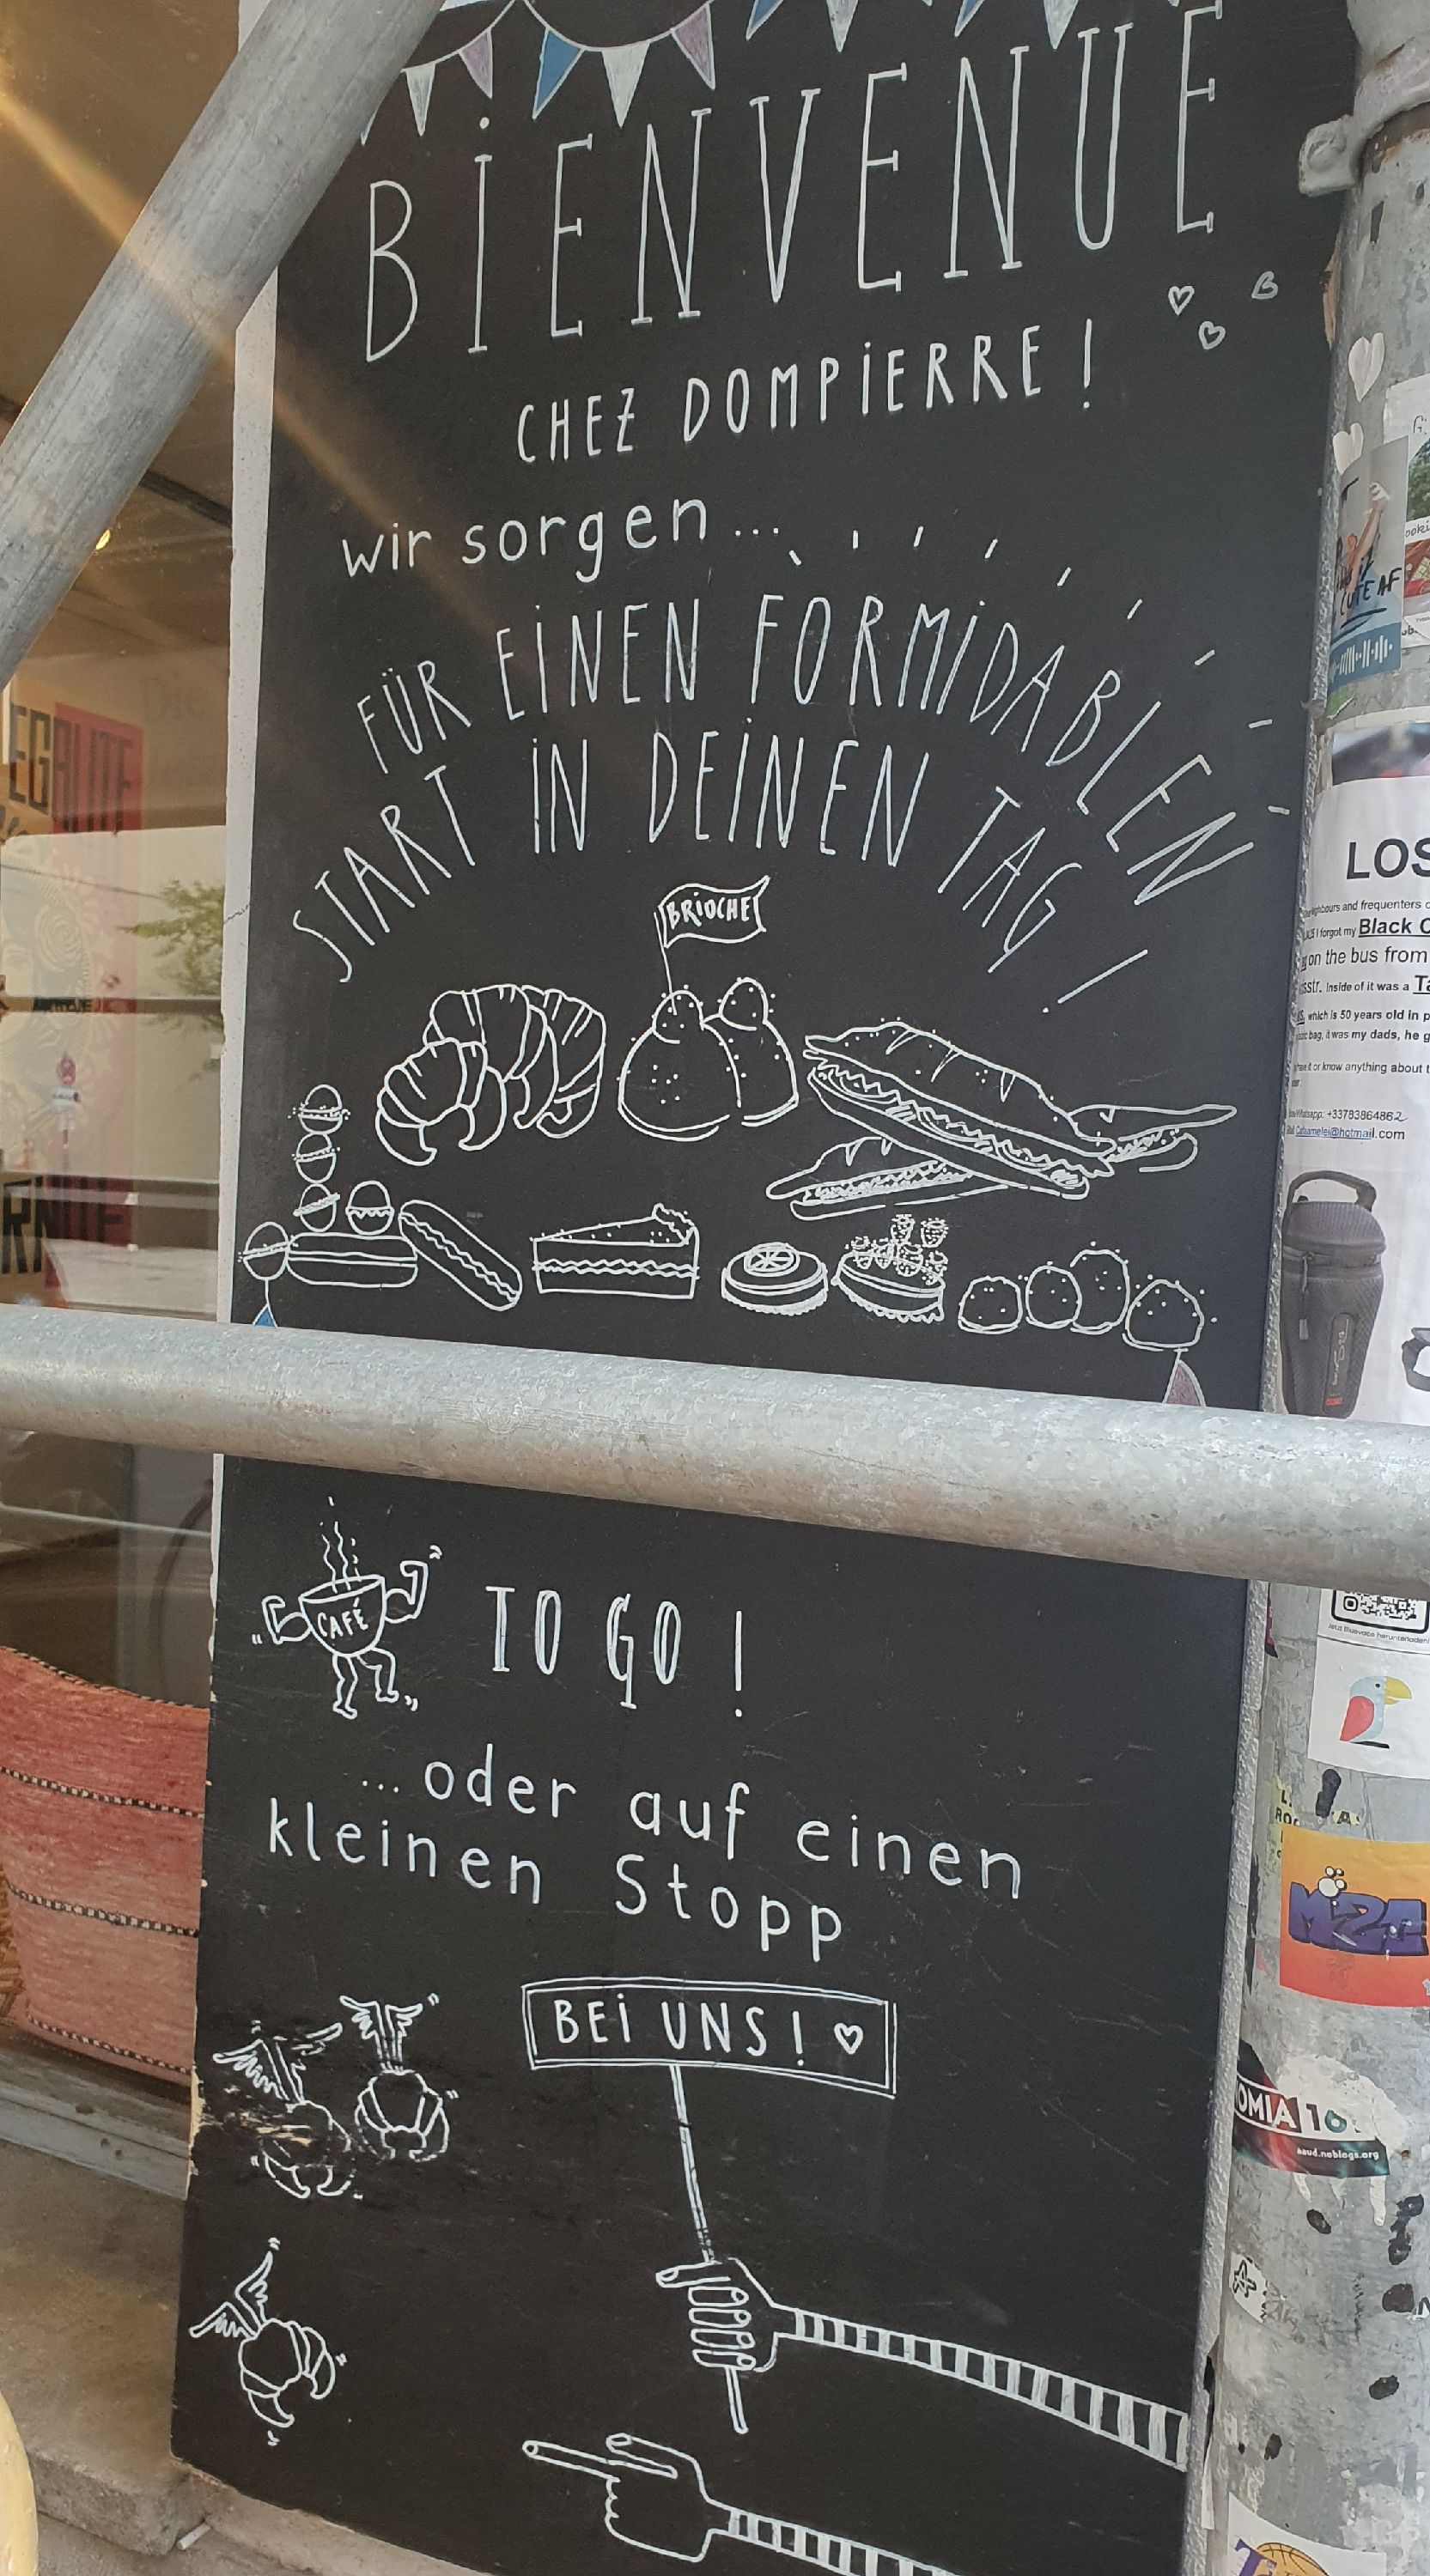 BiENVENUE
CHEZ DOMPiERRE !
wir sorgen...
FÜR EiNEN FORMiDABLEN
START iN DEiNEN TAG !
BRiOCHE
CAFÉ
TO GO !
...oder auf einen
kleinen Stopp
BEi UNS ! ♡
EGALITE
LOS
neighbours and frequenters
I forgot my Black
on the bus from
sstr. Inside of it was a
which is 50 years old in p
bag, it was my dads, he g
or know anything about t
Whatsapp: +33783864862
@hotmail.com
CUTE AF
OMIA 16
aaud.noblogs.org